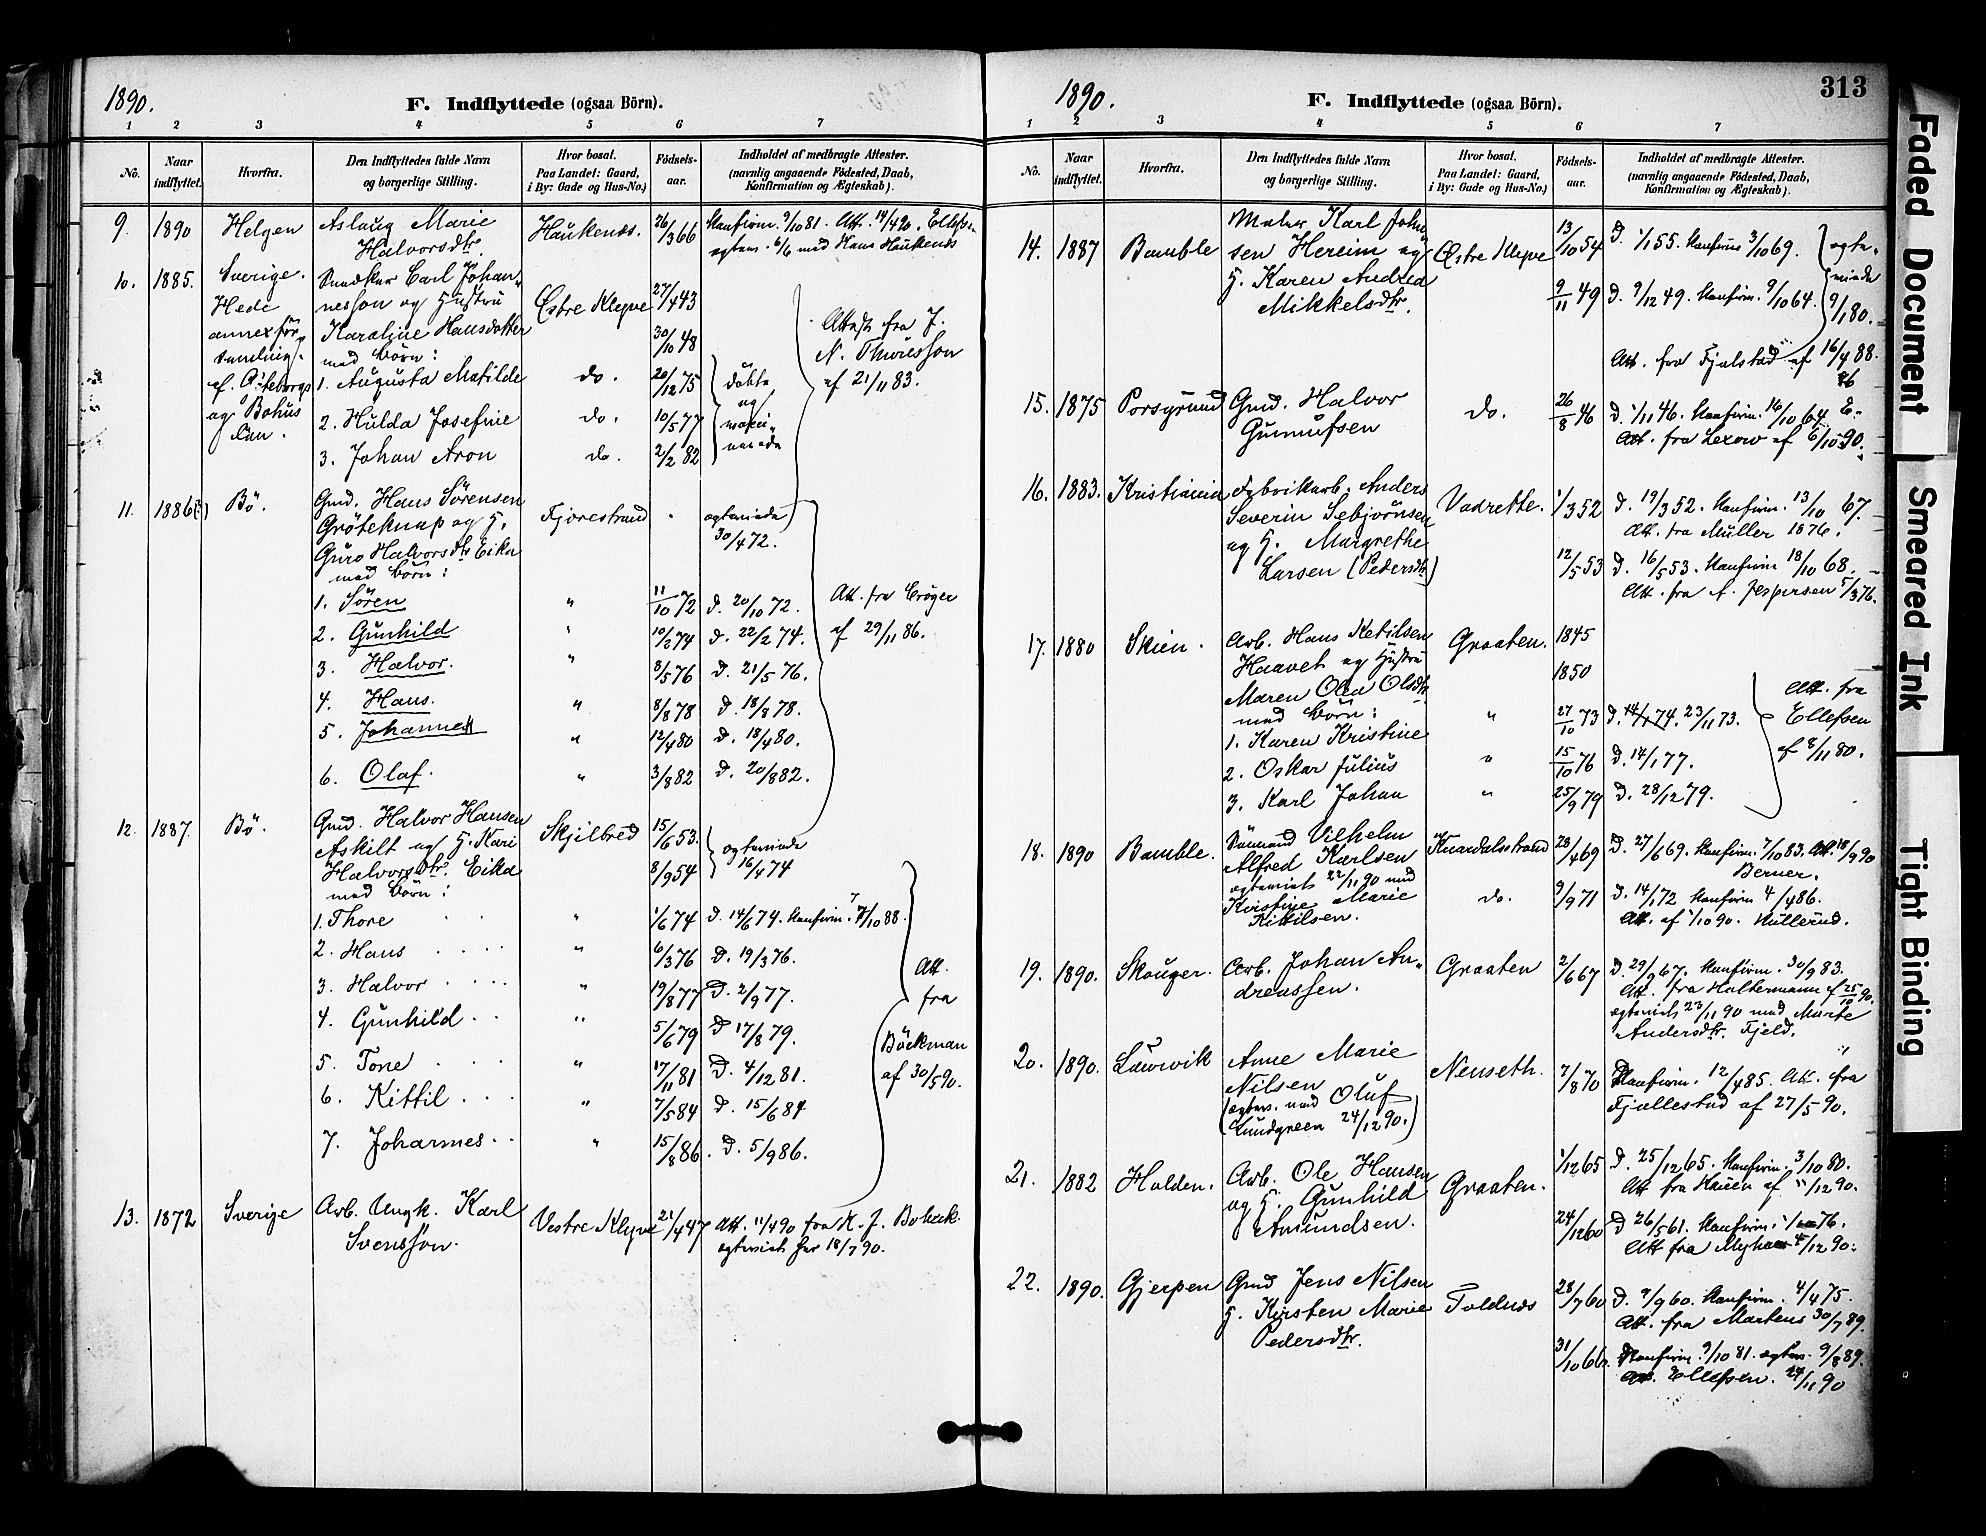 1890.
F. Indflyttede (ogsaa Börn).
1 2 3 4 5 6 7
No.
Naar indflyttet.
Hvorfra.
Den Indflyttedes fulde Navn og borgerlige Stilling.
Hvor bosat. Paa Landet: Gaard, i By: Gade og Hus-No.)
Fødsels-aar.
Indholdet af medbragte Attester. (navnlig angaaende Fødested, Daab, Konfirmation og Ægteskab).
9. 1890 Helgen Aslaug Marie Haukenæs. 26/3 66 Konfirm. 9/10 81. Att. 14/4 90. Ellefsen
Halvorsdtr. egtev. 6/6 med Hans Haukenæs
10. 1885. Sverige. Snedker Carl Johan-
Hede nesson og Hustru Østre Klyve 27/4 43
annexför- Karoline Hansdotter 30/10 48 Attest fra J.
samling med börn: N. Thuresson
af Göteborgs 1. Augusta Matilde do. 20/12 75 döbte af 21/11 83.
og Bohus 2. Hulda Josefine do. 10/5 77 og
Län. 3. Johan Aron do. 2/2 82 vaccinerede
11. 1886(?) Bö. Gmd. Hans Sörensen Fjærestrand egteviede
Gröteknap og H. 30/4 72.
Guro Halvorsdtr. Eika
med börn:
1. Sören " 11/10 72 d. 20/10 72. Att. fra Cröger
2. Gunhild " 10/2 74 d. 22/2 74. af 29/11 86.
3. Halvor. " 8/5 76 d. 21/5 76.
4. Hans. " 8/8 78 d. 18/8 78.
5. Johannes " 12/4 80 d. 18/4 80.
6. Olaf. " 3/8 82 d. 20/8 82.
12. 1887. Bö. Gmd. Halvor Hansen Skjilbred 15/6 53. egteviede
Askilt og H. Kari 8/9 54 16/4 74
Halvorsdtr. Eika
med börn:
1. Thore " 1/6 74 d. 14/6 74. Konfirm. 7/10 88.
2. Hans " 6/3 76 D. 19/3 76.
3. Halvor " 19/8 77 D. 2/9 77. Att. fra
4. Gunhild " 5/6 79 D 17/8 79. Böckman
5. Tone " 17/11 81 D. 4/12 81. af 30/5 90.
6. Kittil " 7/5 84 D. 15/6 84
7. Johannes " 15/8 86. D. 5/9 86.
13. 1872 Sverige Arb. Ungk. Karl Vestre Klyve 21/4 47 Att. 11/4 90 fra K. J.
Svensson. egteviet her 18/7 90.
1890.
F. Indflyttede (ogsaa Börn).
313
1 2 3 4 5 6 7
No.
Naar indflyttet.
Hvorfra.
Den Indflyttedes fulde Navn og borgerlige Stilling.
Hvor bosat. Paa Landet: Gaard, i By: Gade og Hus-No.)
Fødsels-aar.
Indholdet af medbragte Attester. (navnlig angaaende Fødested, Daab, Konfirmation og Ægteskab).
14. 1887 Bamble Maler Karl John Østre Klyve 13/10 54 D. 1/1 55. Konfirm 3/10 69. egte-
sen Hereim og viede
H. Karen Andrea 9/11 49 D. 9/12 49. Konfirm. 9/10 64. 9/1 80.
Mikkelsdtr. Att. fra Fjelstad af 16/4 88.
15. 1875 Porsgrund Gmd. Halvor do. 26/8 46 D. 1/11 46. Konfirm. 16/10 64.
Gunnufsen Att. fra Lexow af 6/10 90.
16. 1883. Kristiania Fabrikarb. Anders Vadrette. 1/3 52 D. 19/3 52. Konfirm. 13/10 67.
Severin Sebjörnsen Att. fra Müller 1876.
og H. Margrethe 12/5 53 D. 16/5 53. Konfirm 18/10 68.
Larsen (Pedersdtr) Att. fra A. Jespersen 5/3 76.
17. 1880 Skien. Arb. Hans Ketilsen Graaten. 1845
Haavet og Hustru 1850
Maren Olea Olsdtr. Att. fra
med börn: Ellefsen
1. Karen Kristine " 27/10 73 D. 14/1 74. 23/11 73. af 8/11 80.
2. Oskar Julius " 15/10 76 D. 14/1 77.
3. Karl Johan " 25/9 79 D. 28/12 79.
18. 1890 Bamble. Sömand Vilhelm Knardalsstrand 28/4 69 D. 27/6 69. Konfirm. 7/10 83. Att. 18/9 90
Alfred Karlsen Berner.
egteviet 22/11 90 med
Kristine Marie do. 9/9 71 D. 14/1 72 Konfirm 4/4 86.
Kittilsen. Att. af 1/10 90. Kullerud.
19. 1890. Skouger. Arb. Johan An- Graaten 2/6 67 D. 29/9 67. Konfirm. 30/9 83.
dreassen. Att. fra Haltermann af 25/10 90.
egteviet 23/11 90 med Marte
Andersdtr. Fjeld.
20. 1890. Laurvik Anne Marie Nenseth. 7/8 70 Konfirm. 12/4 85. Att. fra
Nilsen Fjællestad af 27/5 90.
(egtev. med Oluf
Lundgreen 24/12 90.)
21. 1882 Holden. Arb. Ole Hansen Graaten. 1/12 65 D. 25/12 65. Konfirm. 3/10 80.
og H. Gunhild Att fra Hauen af 11/12 90.
Amundsen. 24/12 60 D 26/5 61. Konfirm. 1876.
Att fra 4/12 90.
22. 1890. Gjerpen Gmd Jens Nilsen Toldnæs 28/7 60 D. 9/9 60. Konfirm. 4/4 75.
H. Kirsten Marie Att. fra Martens 30/7 89.
Pedersdtr. 31/10 66. Konfirm 9/10 81. egtev. 9/8 89.
Att. Ellefsen. 24/11 90
Faded Document
Smeared Ink
Tight Binding